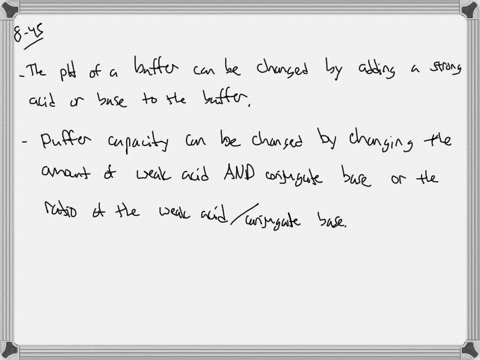 8-45
- The pH of a buffer can be changed by adding a strong
acid or base to the buffer.
- Buffer capacity can be changed by changing the
amount of weak acid AND conjugate base or the
ratio of the weak acid/conjugate base.